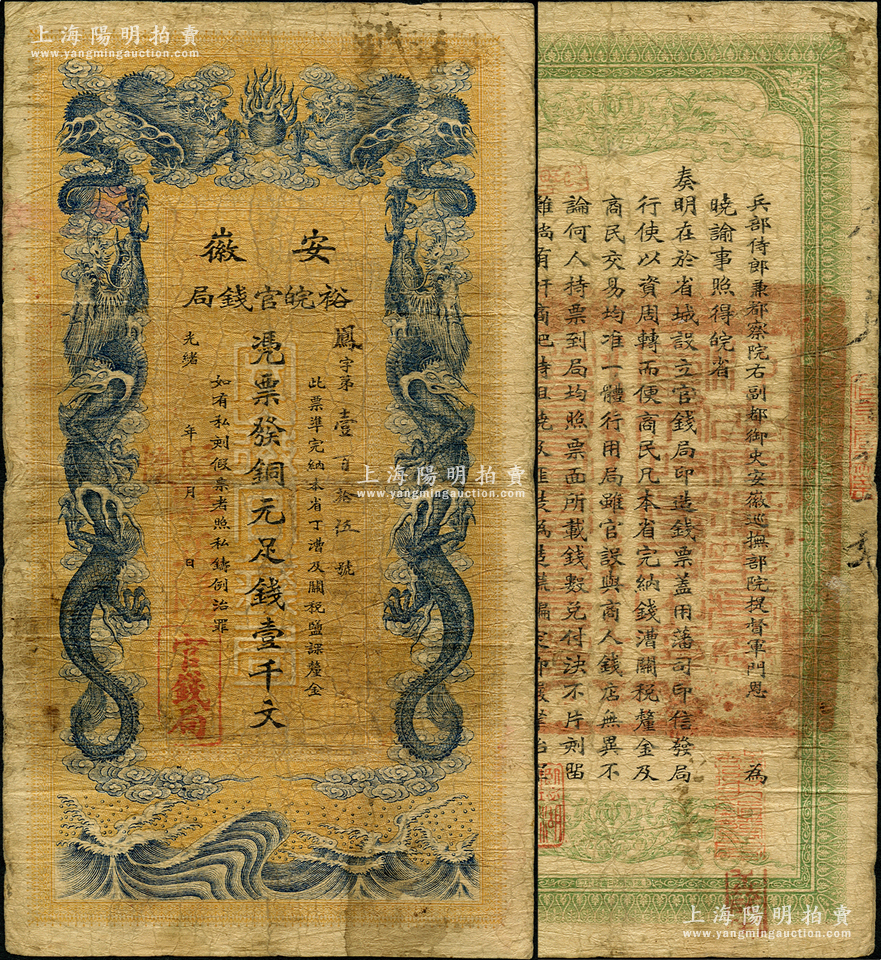 上海陽明拍賣
www.yangmingauction.com
安徽
裕皖官錢局
鳳字第壹百拾伍號
此票準完納本省丁漕及關稅鹽課釐金
憑票發銅元足錢壹千文
如有私刻假票者照私鑄例治罪
光緒 年 月 日
官錢局
上海陽明拍賣
www.yangmingauction.com
兵部侍郎兼都察院右副都御史安徽巡撫部院提督軍門恩 為
曉諭事照得皖省
奏明在於省城設立官錢局印造錢票蓋用藩司印信發局
行使以資周轉而便商民凡本省完納錢漕關稅釐金及
商民交易均准一體行用局雖官設與商人錢店無異不
論何人持票到局均照票面所載錢數兌付決不片刻留
上海陽明拍賣
www.yangmingauction.com